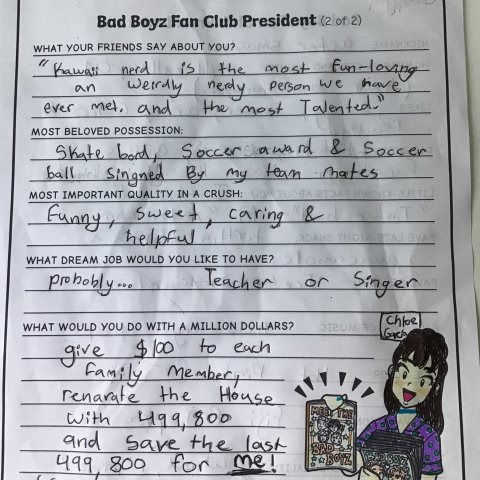 Bad Boyz Fan Club President (2 of 2)
WHAT YOUR FRIENDS SAY ABOUT YOU?
"Kawaii nerd is the most fun-loving
an weirdly nerdy person we have
ever met. and the most Talented."
MOST BELOVED POSSESSION:
Skate bord, Soccer award & Soccer
ball singned By my team mates
MOST IMPORTANT QUALITY IN A CRUSH:
Funny, sweet, caring &
helpful
WHAT DREAM JOB WOULD YOU LIKE TO HAVE?
probobly... Teacher or Singer
WHAT WOULD YOU DO WITH A MILLION DOLLARS?
give $100 to each
family member,
renarate the House
with 499,800
and save the last
499,800 for me!
Chloe
Garcia
MEET THE
BAD
BOYZ